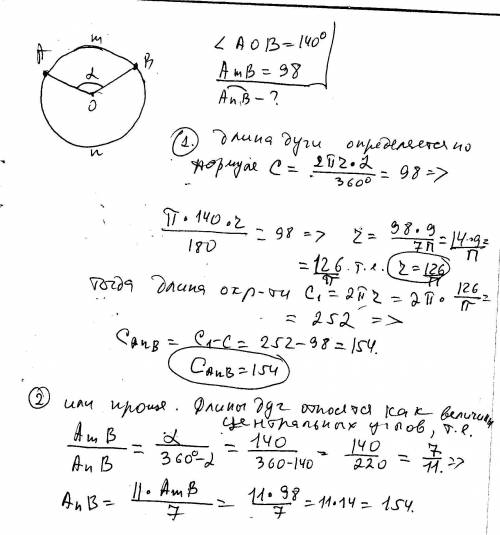 m
A
B
α
O
n
∠AOB = 140°
AmB = 98
AnB – ?
1. Длина дуги определяется по
формуле C = 2πr·α / 360° = 98 =>
π·140·r / 180 = 98 => r = 98·9 / 7π = 14·9 / π =
= 126 / π т.е. r = 126 / π
тогда длина окр-ти C₁ = 2πr = 2π · 126 / π =
= 252 =>
CAnB = C₁ – C = 252 – 98 = 154.
CAnB = 154
2 или проще. Длины дуг относятся как величины
центральных углов, т.е.
AmB / AnB = α / 360° – α = 140 / 360 – 140 = 140 / 220 = 7 / 11 =>
AnB = 11·AmB / 7 = 11·98 / 7 = 11·14 = 154.